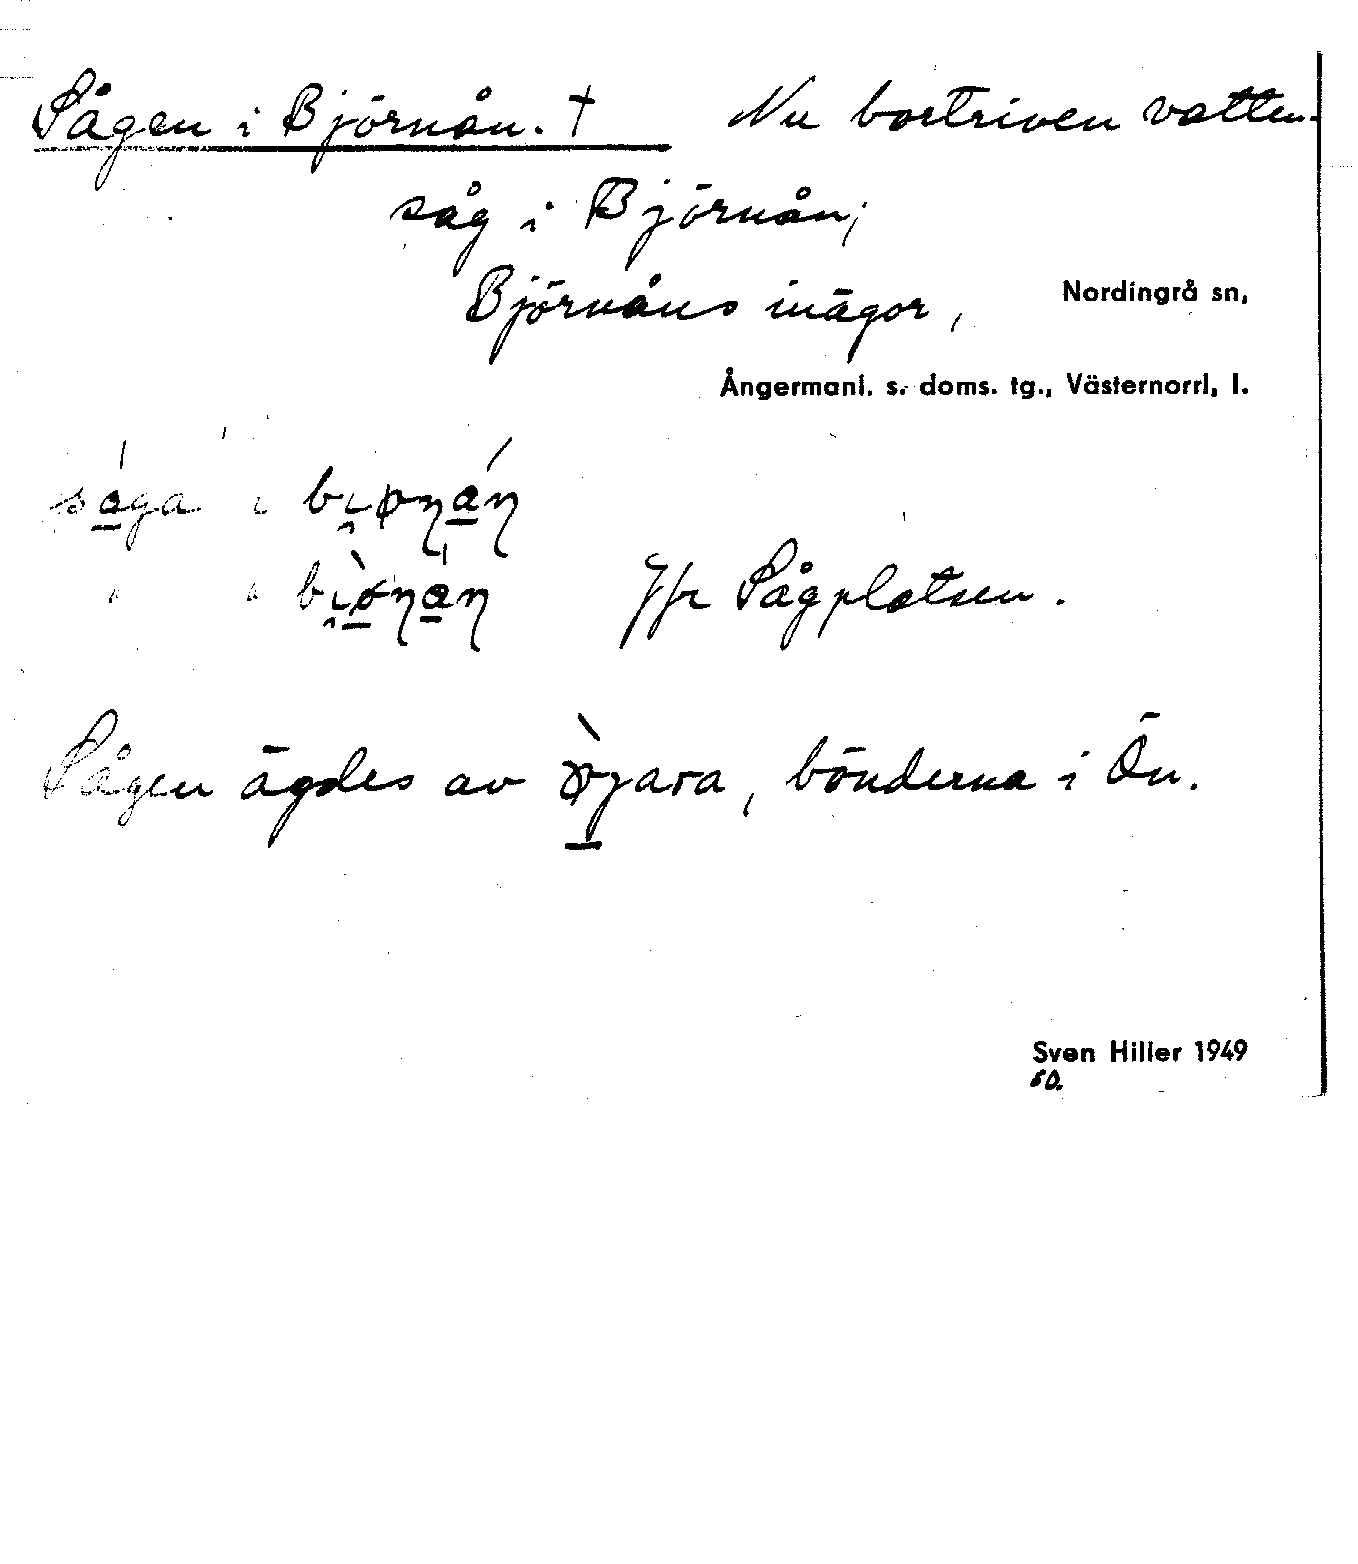 Sågen i Björnån. † Nu bortriven vatten-
såg i Björnån;
Björnåns inägor, Nordingrå sn,
Ångermanl. s. doms. tg., Västernorrl. l.
såga i
Jfr Sågplatsen.
Sågen ägdes av bönderna i Ön.
Sven Hiller 1949
50.